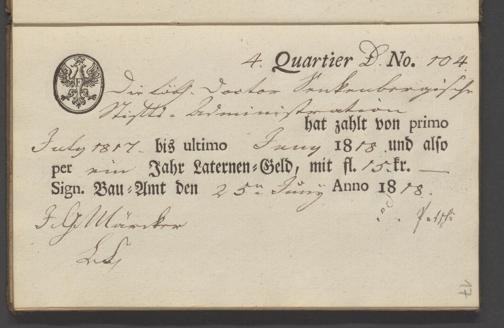 4. Quartier D. No. 104
Die Löbl. Doctor Senkenbergische
Stifts-Administration
hat zahlt von primo
July 1817. bis ultimo Juny 1818 und also
per ein Jahr Laternen-Geld, mit fl. 15. kr. —
Sign. Bau-Amt den 25n Juny Anno 1818.
J. G. Märcker
17